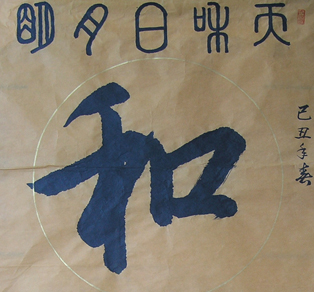 天和日月明
和
己丑年春